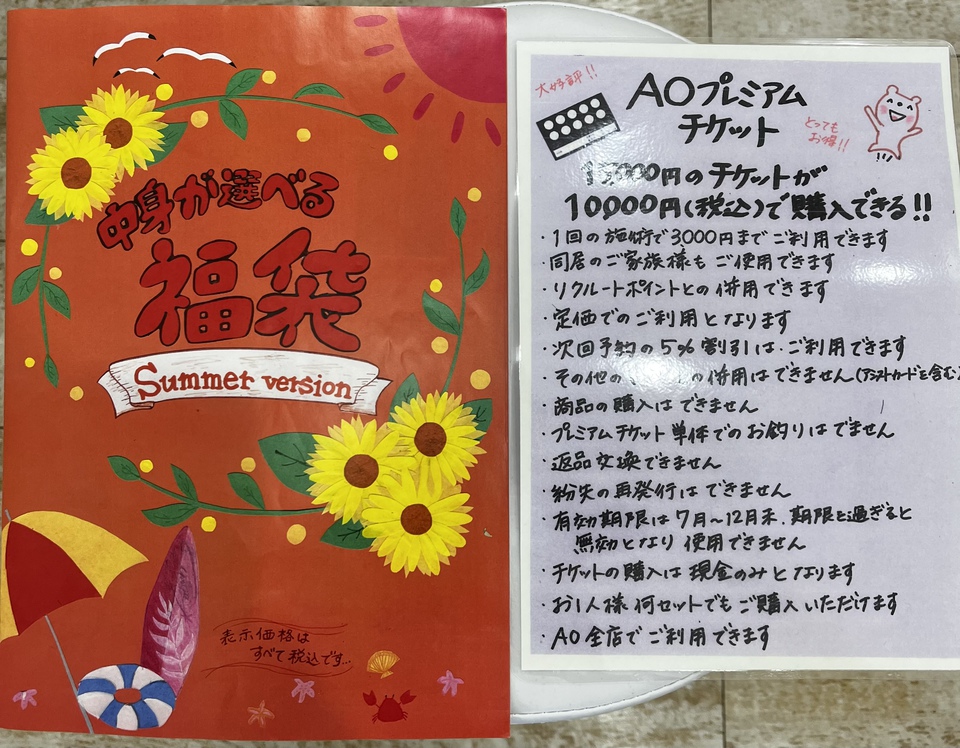 中身が選べる
福袋
Summer version
表示価格は
すべて税込です…
大好評!!
AOプレミアム
チケット
とっても
お得!!
000円のチケットが
10000円(税込)で購入できる!!
・1回の施術で3000円までご利用できます
・同居のご家族様もご使用できます
・リクルートポイントとの併用できます
・定価でのご利用となります
・次回予約の5%割引はご利用できます
・その他の の併用はできません(アシストカードを含む)
・商品の購入はできません
・プレミアムチケット単体でのお釣りはでません
・返品交換できません
・紛失の再発行はできません
・有効期限は7月〜12月末.期限を過ぎると
無効となり使用できません
・チケットの購入は現金のみとなります
・お1人様何セットでもご購入いただけます
・AO全店でご利用できます